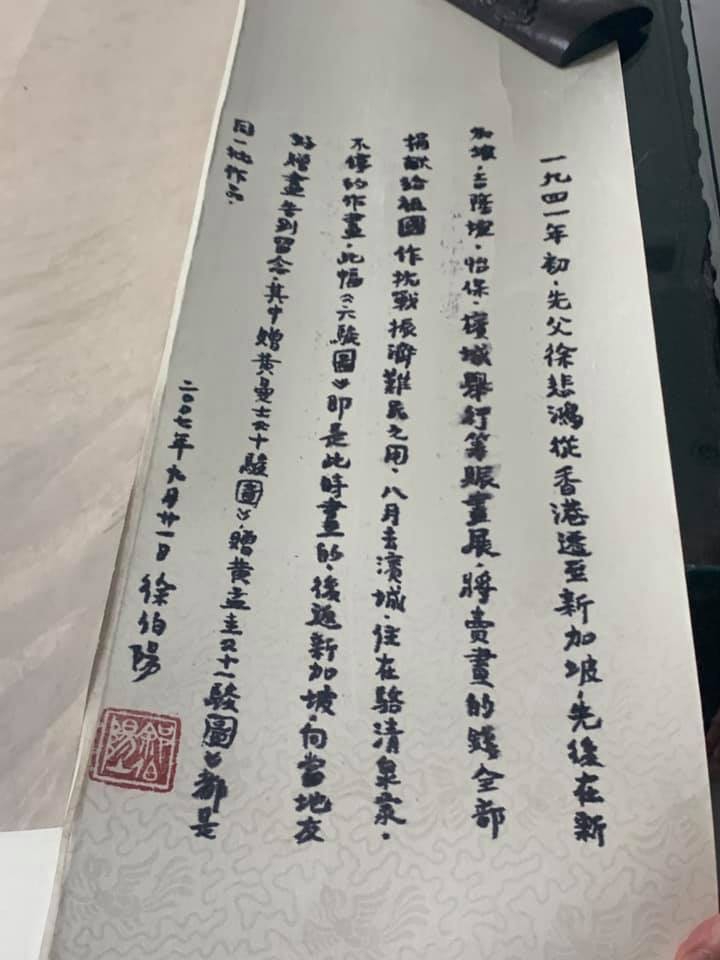 一九四一年初·先父徐悲鴻從香港遷至新加坡·先後在新
加坡·吉隆坡·怡保·檳城舉行筹賑畫展·將賣畫的錢全部
捐献給祖國作抗戰振濟難民之用·八月去濱城·住在駱清泉家·
不停的作畫·此幅《六駿圖》即是此時畫的·後返新加坡·向當地友
好贈畫告别留念·其中贈黄曼士《十駿圖》·贈黄孟圭《十一駿圖》都是
同一批作品·
二〇〇七年九月廿一日徐伯陽
徐伯陽